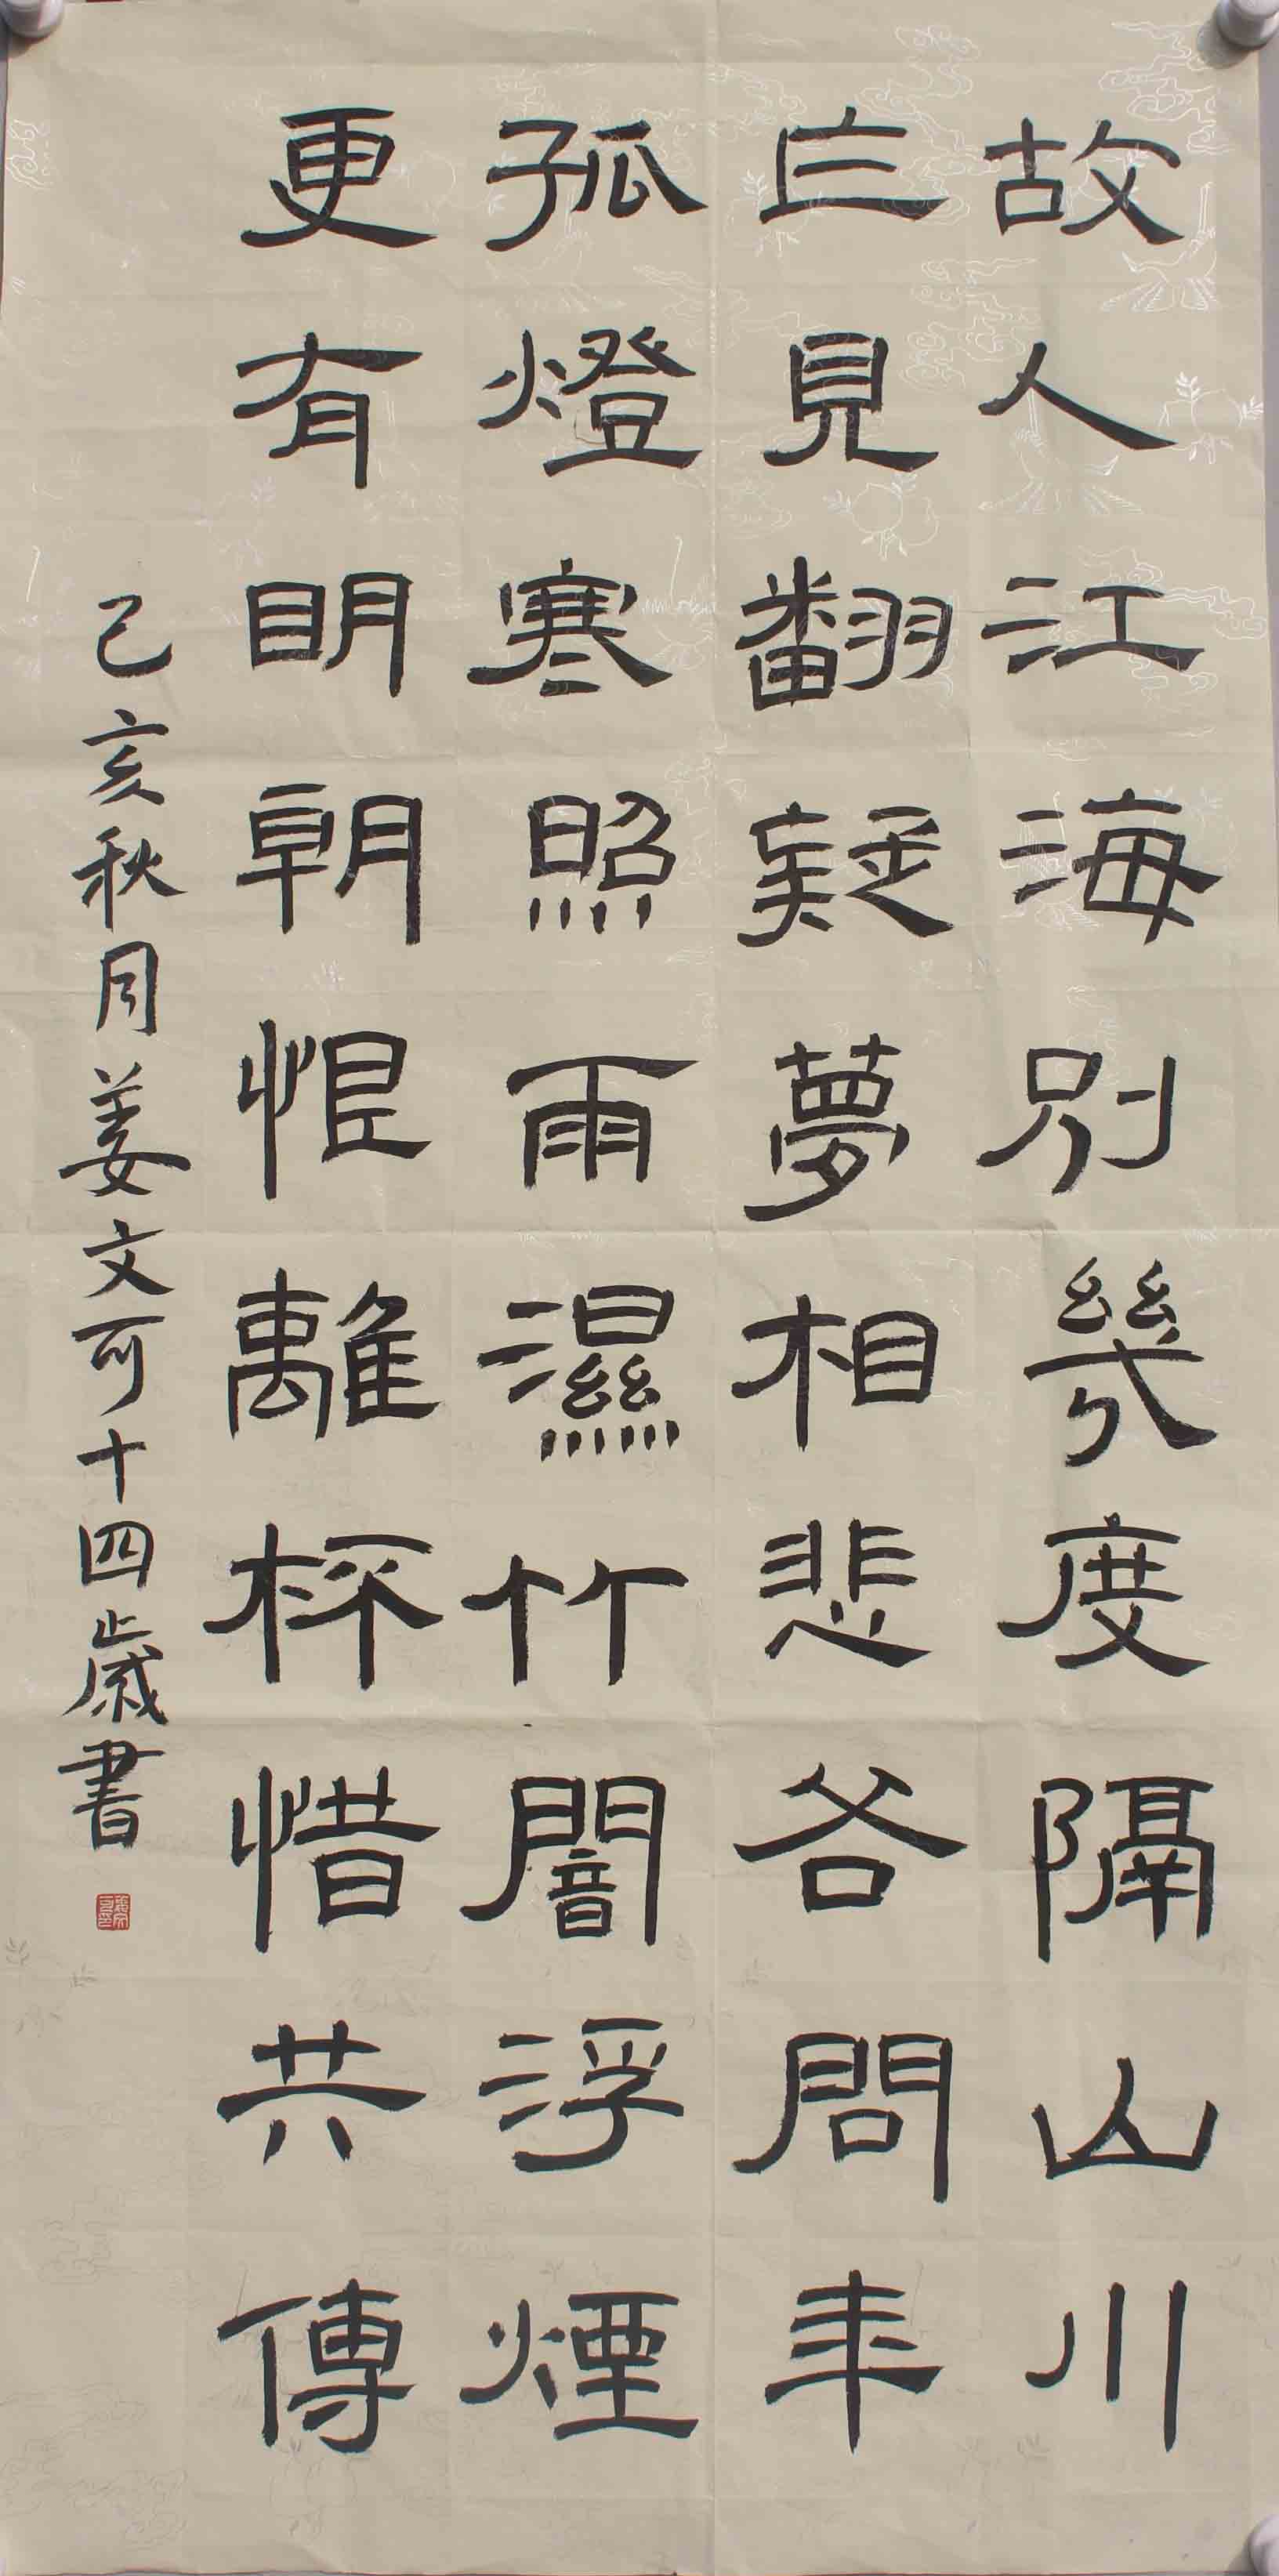 故人江海別幾度隔山川
亡見翻疑夢相悲各問年
孤燈寒照雨濕竹闇浮煙
更有明朝恨離杯惜共傳
己亥秋月姜文可十四歲書